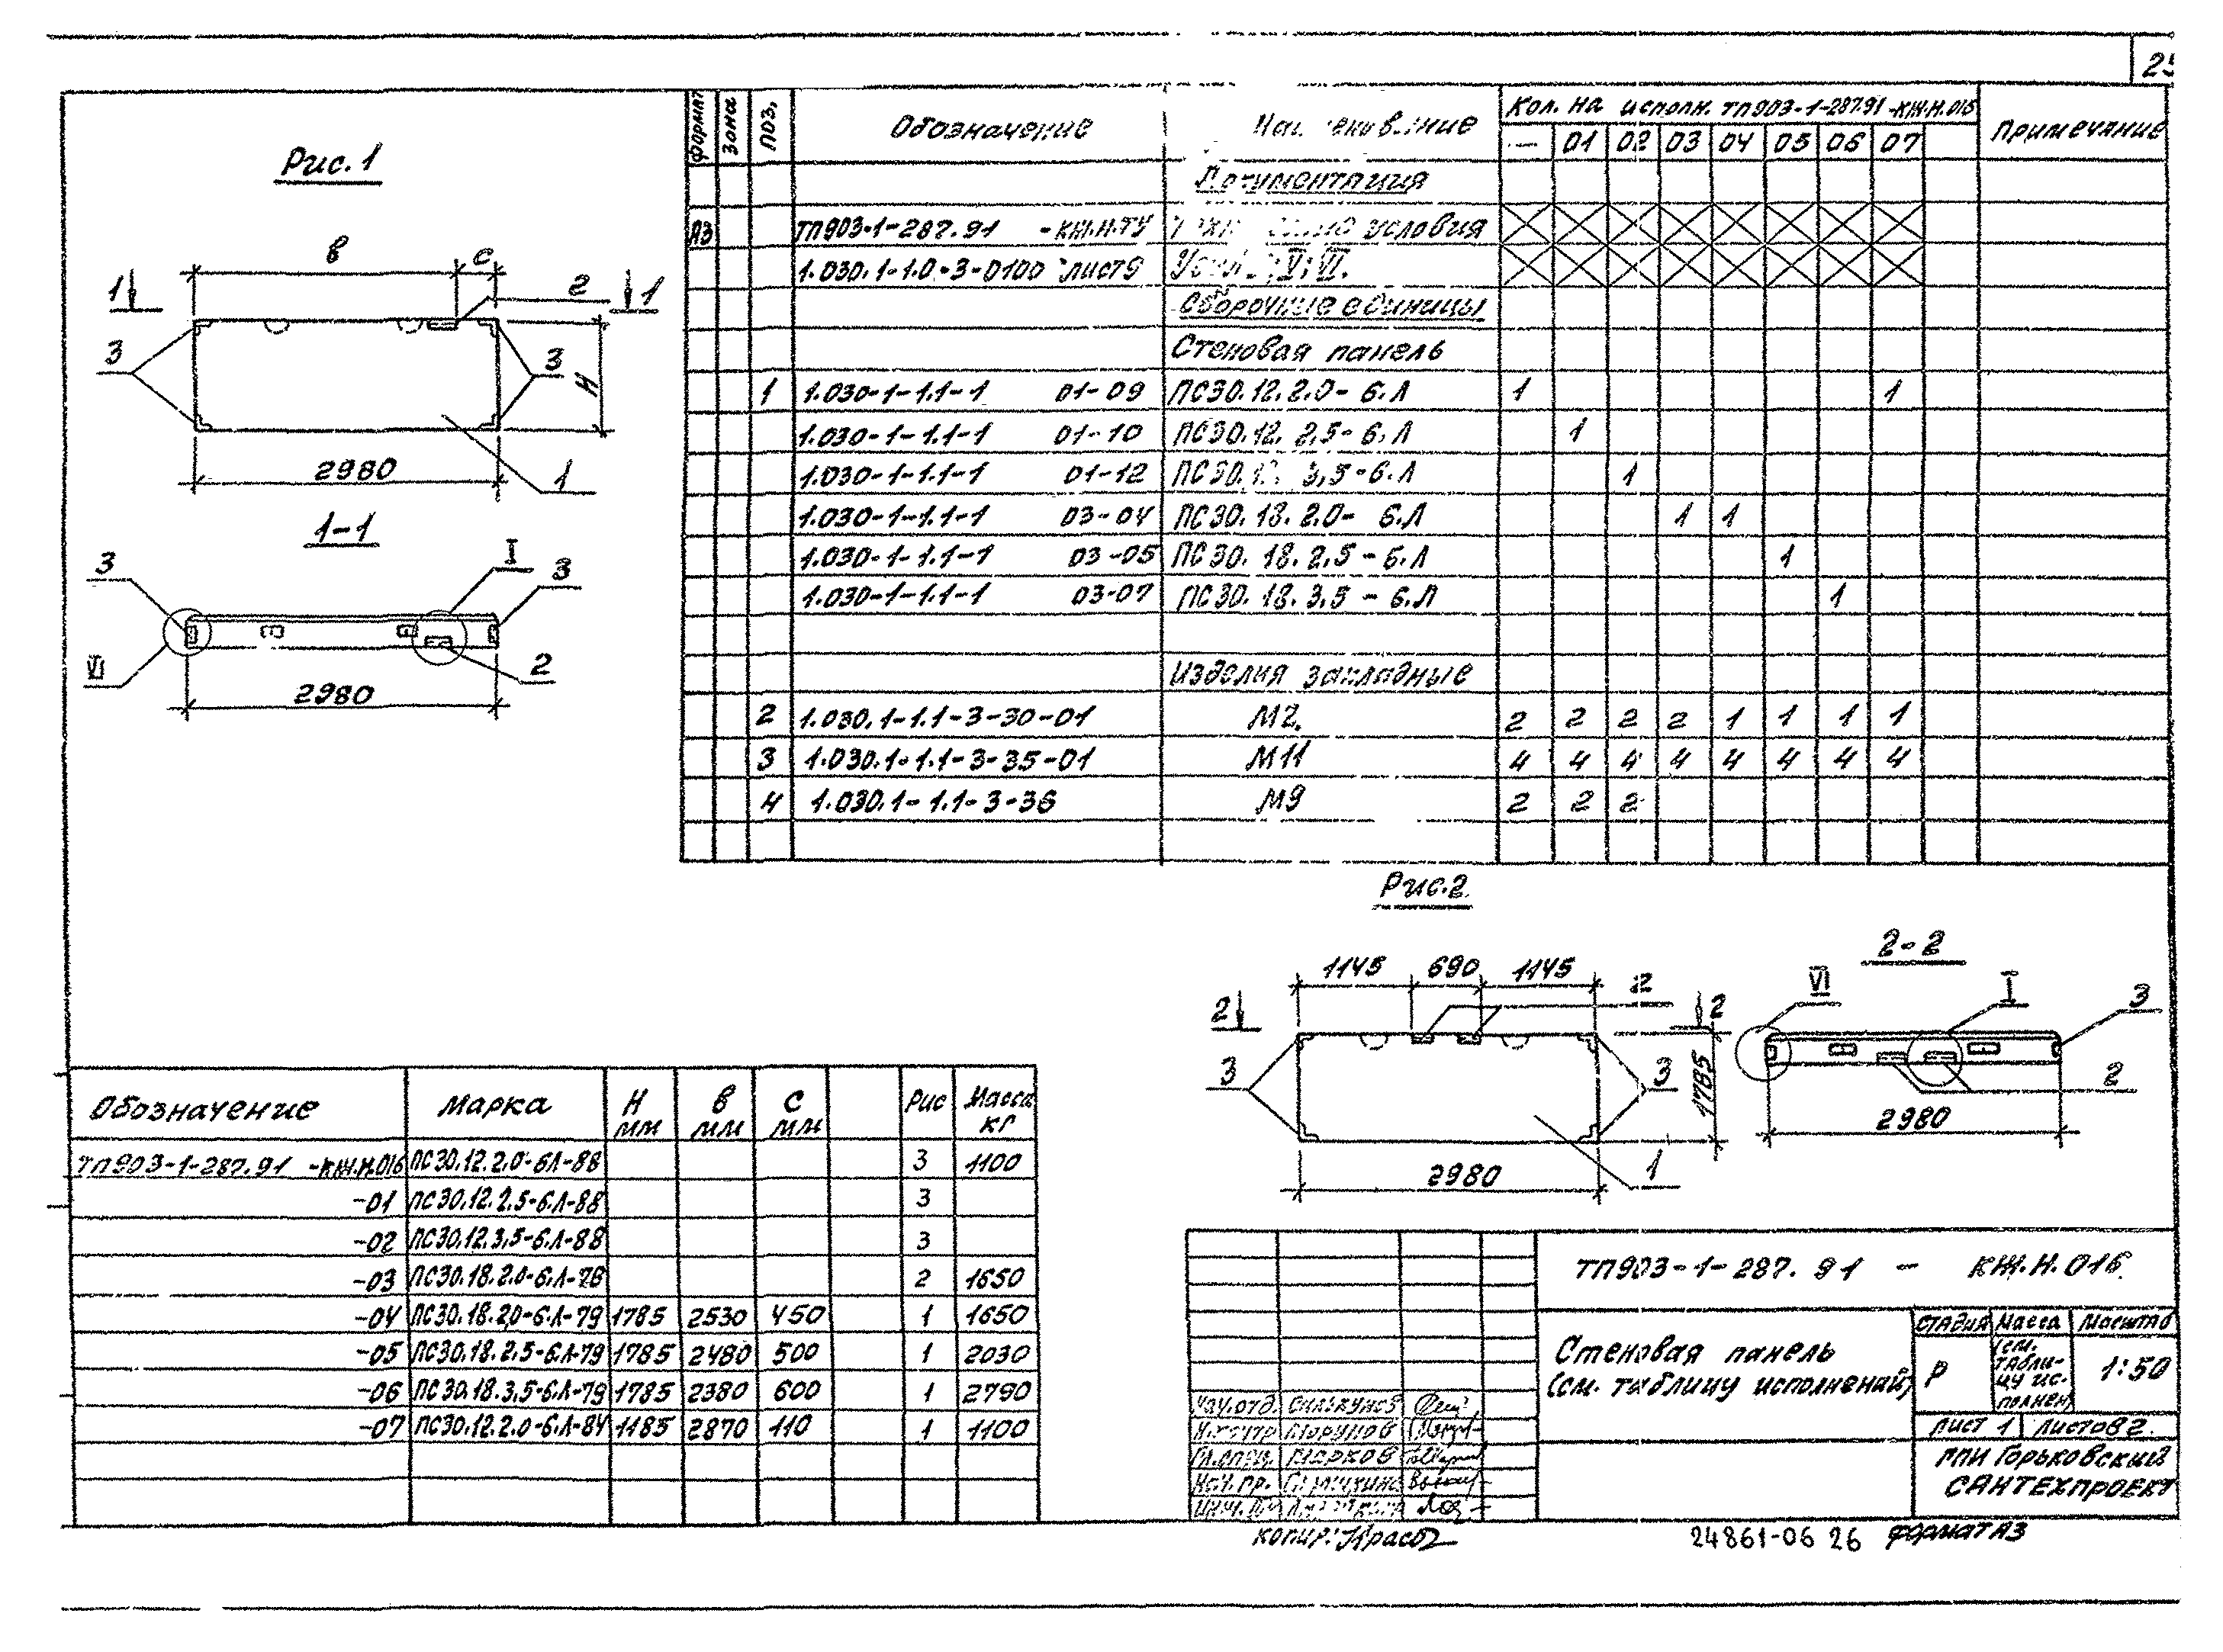 25
Рис. 1
в
с
1
2
1
3
3
Н
2980
1
1-1
3
I
3
VI
2
2980
формат
зона
поз.
Обозначение
Кол. на исполн. ТП903-1-287.91-КЖ.Н.016
Примечание
— 01 02 03 04 05 06 07
Документация
А3 ТП903-1-287.91 -КЖ.Н.ТУ условия
1.030.1-1.0-3-0100 лист 9 V; VI.
Сборочные единицы
Стеновая панель
1 1.030-1-1.1-1 01-09 ПС30.12.2.0-6.Л 1 1
1.030-1-1.1-1 01-10 ПС30.12.2,5-6.Л 1
1.030-1-1.1-1 01-12 3,5-6.Л 1
1.030-1-1.1-1 03-04 ПС30.18.2.0-6.Л 1 1
1.030-1-1.1-1 03-05 ПС30.18.2,5-6.Л 1
1.030-1-1.1-1 03-07 ПС30.18.3,5-6.Л 1
Изделия закладные
2 1.030.1-1.1-3-30-01 М2. 2 2 2 2 1 1 1 1
3 1.030.1-1.1-3-35-01 М11 4 4 4 4 4 4 4 4
4 1.030.1-1.1-3-36 М9 2 2 2
Рис.2
1145 690 1145
2
2
2
3
3
1785
2980
1
2-2
VI
I
3
2
2980
Обозначение Марка Н мм в мм С мм Рис Масса кг
ТП903-1-287.91 -КЖ.Н.016 ПС30.12.2,0-6Л-88 3 1100
-01 ПС30.12.2,5-6.Л-88 3
-02 ПС30.12.3,5-6.Л-88 3
-03 ПС30.18.2.0-6.Л-78 2 1650
-04 ПС30.18.2,0-6.Л-79 1785 2530 450 1 1650
-05 ПС30.18.2,5-6.Л-79 1785 2480 500 1 2030
-06 ПС30.18.3,5-6.Л-79 1785 2380 600 1 2790
-07 ПС30.12.2.0-6.Л-84 1185 2870 110 1 1100
ТП903-1-287.91 - КЖ.Н.016.
Стеновая панель
(см. таблицу исполнений)
Стадия Масса Масштаб
Р
(см.
табли-
цу ис-
полнен)
1:50
Лист 1 Листов 2
ГПИ Горьковский
САНТЕХПРОЕКТ
Нач.отд.
Н.контр
Гл.спец. Марков
копир:
24861-06 26 формат А3